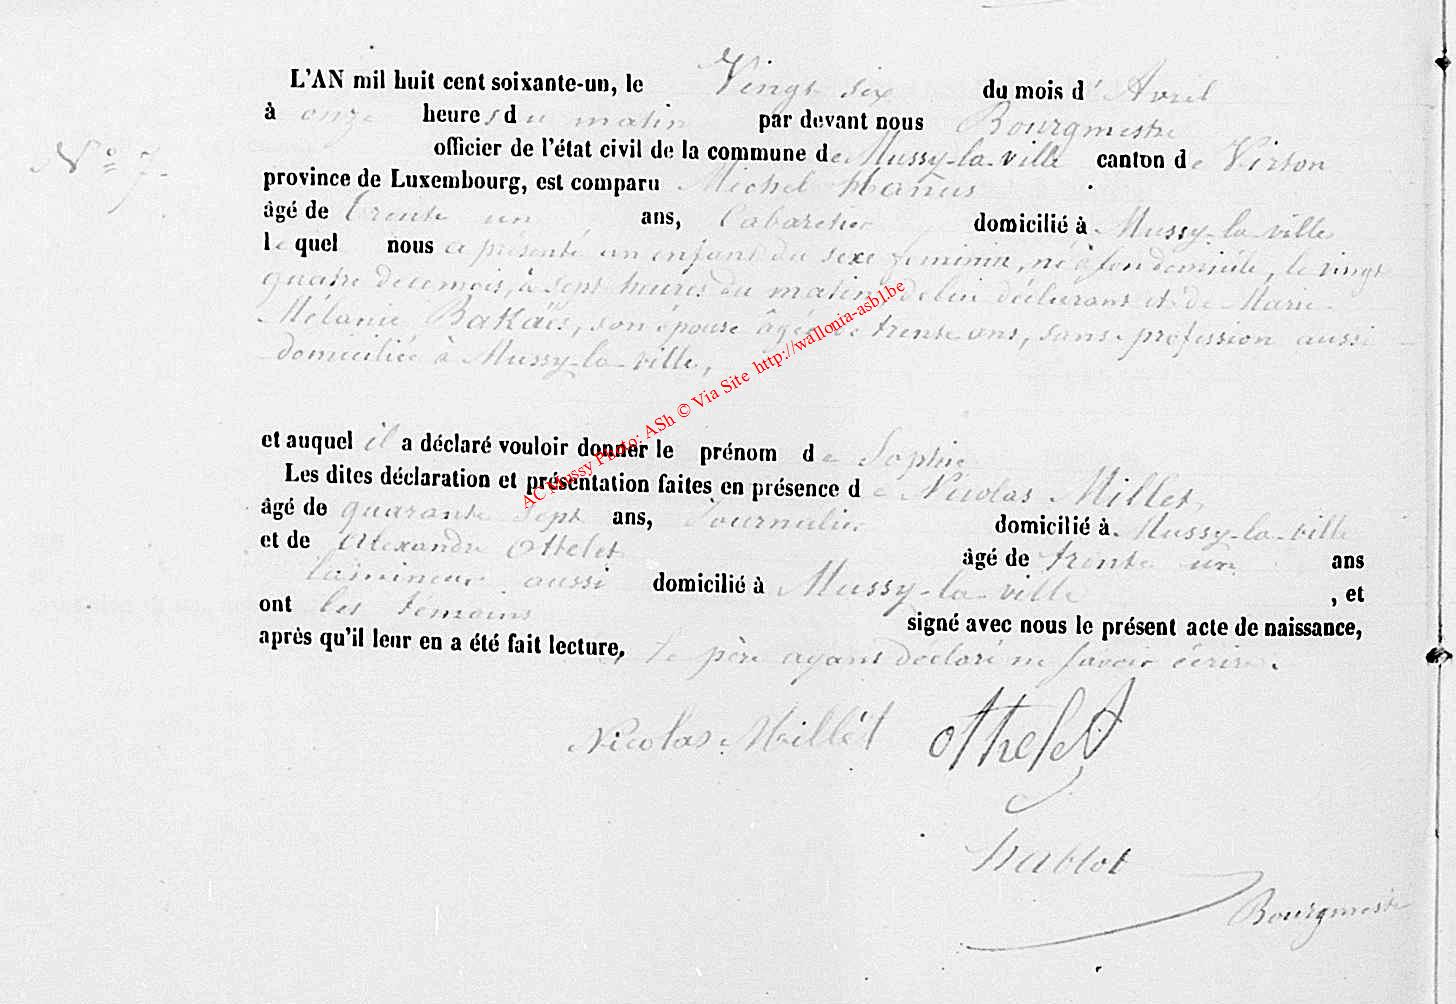 L'AN mil huit cent soixante-un, le Vingt six du mois d'Avril
à onze heures du matin par devant nous Bourgmestre
officier de l'état civil de la commune de Mussy-la-ville canton de Virton
N° 7.
province de Luxembourg, est comparu Michel
âgé de trente un ans, Cabaretier domicilié à Mussy-la-ville
lequel nous a présenté un enfant du sexe feminin, né à son domicile, le vingt
quatre de ce mois, à sept heures du matin de lui déclarant et de Marie
Mélanie Bakaïs, son épouse âgée de trente ans, sans profession aussi
domiciliée à Mussy-la-ville,
et auquel il a déclaré vouloir donner le prénom de Sophie
Les dites déclaration et présentation faites en présence de Nicolas Millet,
âgé de quarante sept ans, Journalier domicilié à Mussy-la-ville
et de Alexandre Othelet âgé de trente un ans
lamineur aussi domicilié à Mussy-la-ville , et
ont les témoins signé avec nous le présent acte de naissance,
après qu'il leur en a été fait lecture, le père ayant declaré ne savoir écrire.
Nicolas Millét Othelet
Bourgmestre
AC Mussy Photo: ASh © Via Site http://wallonia-asbl.be